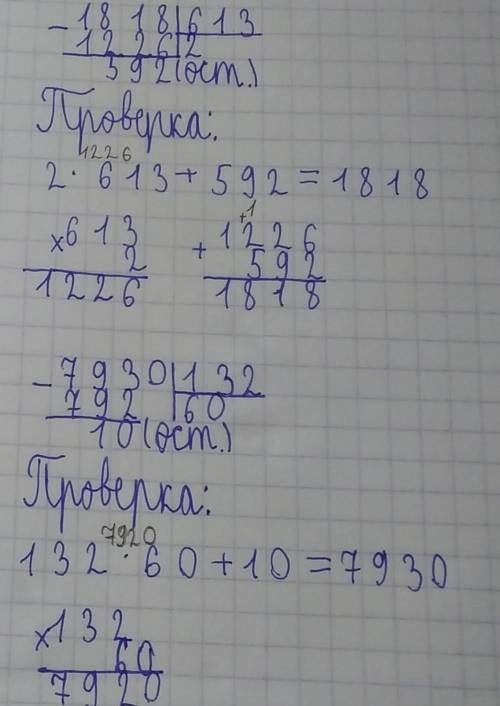 -1818|613
1226|2
592(ост.)
Проверка:
1226
2·613+592=1818
×613 +1
2
1226
+1226
592
1818
-7930|132
792|60
10(ост.)
Проверка:
7920
132·60+10=7930
×132
60
7920